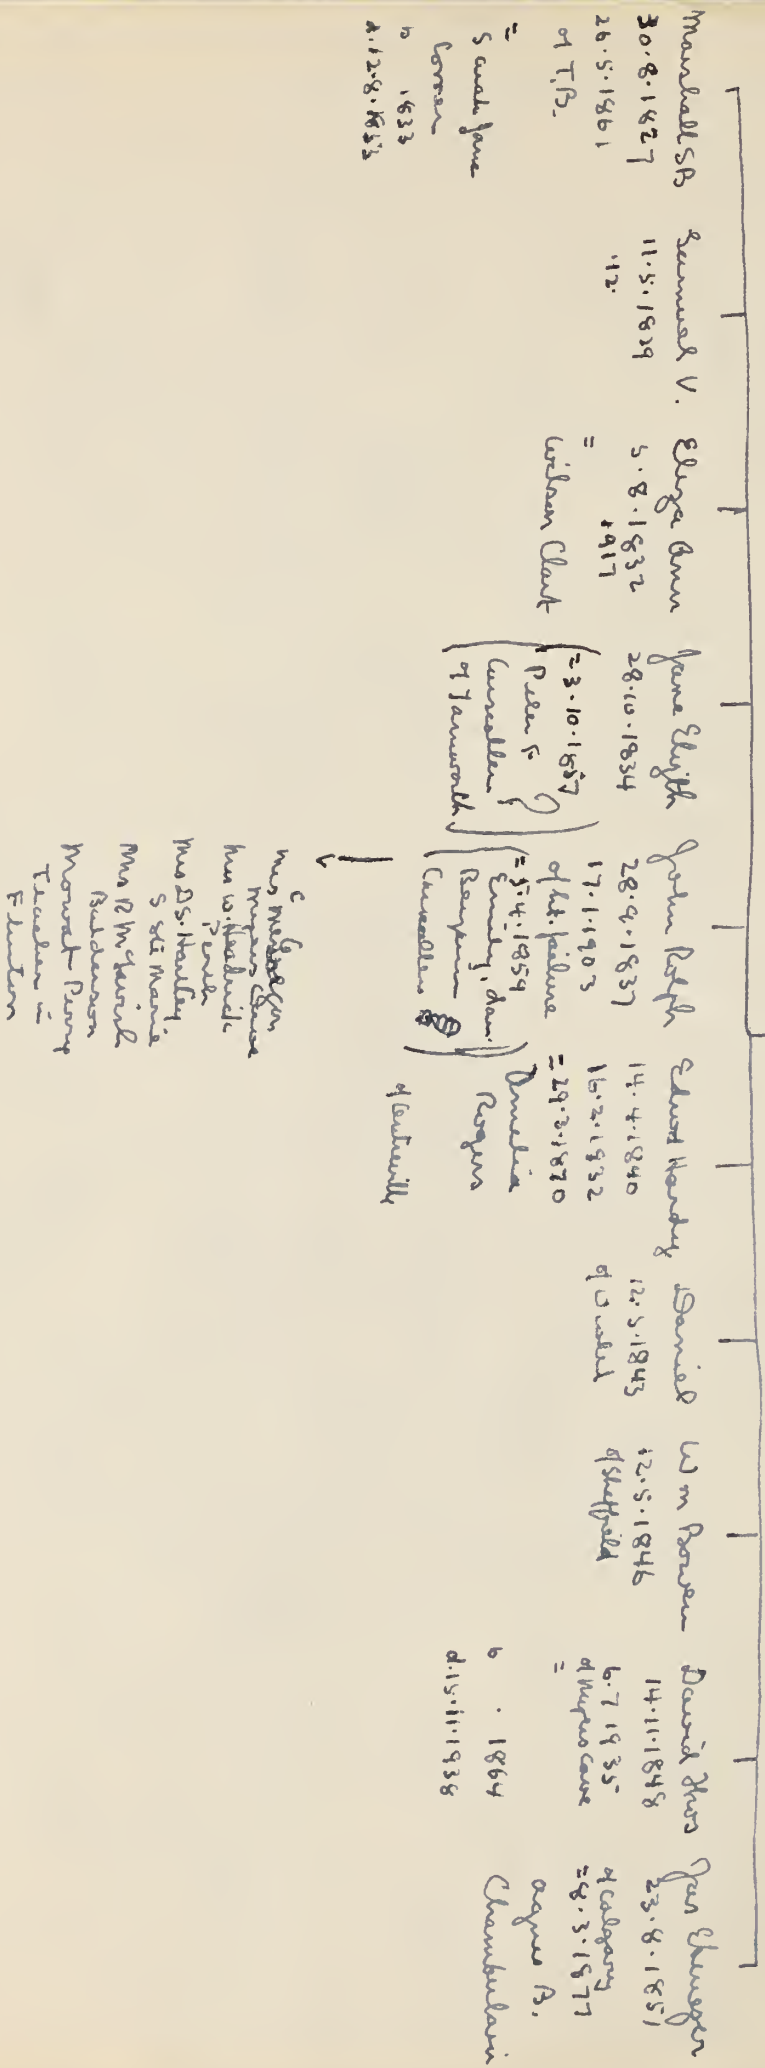 Marshall SB
30.8.1827
26.5.1861
of T.B.
=
Sarah Jane
Comer
b 1833
d.12.8.1853
Samuel V.
11.5.1829
'12.
Eliza Ann
5.8.1832
1917
=
Wilson Clark
Jane Elizth
28.10.1834
=3.10.1857
Peter F
Carscallen
of Tamworth
?
John Rolph
28.9.1837
17.1.1903
of ht. failure
=5.4.1859
Emily, dau.
Benjamin
Carscallen
Mrs
Myers Cave
Mrs W. Headrick
Perth
Mrs D.S. Hartley
S Ste Marie
Mrs R McTavish
Balderson
Mowat Perry
Teacher in
Flinton
Edwd Hardy
14.4.1840
16.2.1932
=29.3.1870
Amelia
Rogers
of Centreville
Daniel
12.5.1843
Wm Bowen
12.5.1846
of Sheffield
David Thos
14.11.1848
6.7 1935
of Myers Cave
=
b . 1864
d.15.11.1938
Jas Ebenezer
23.8.1851
of Calgary
=8.3.1877
Agnes B.
Chamberlain